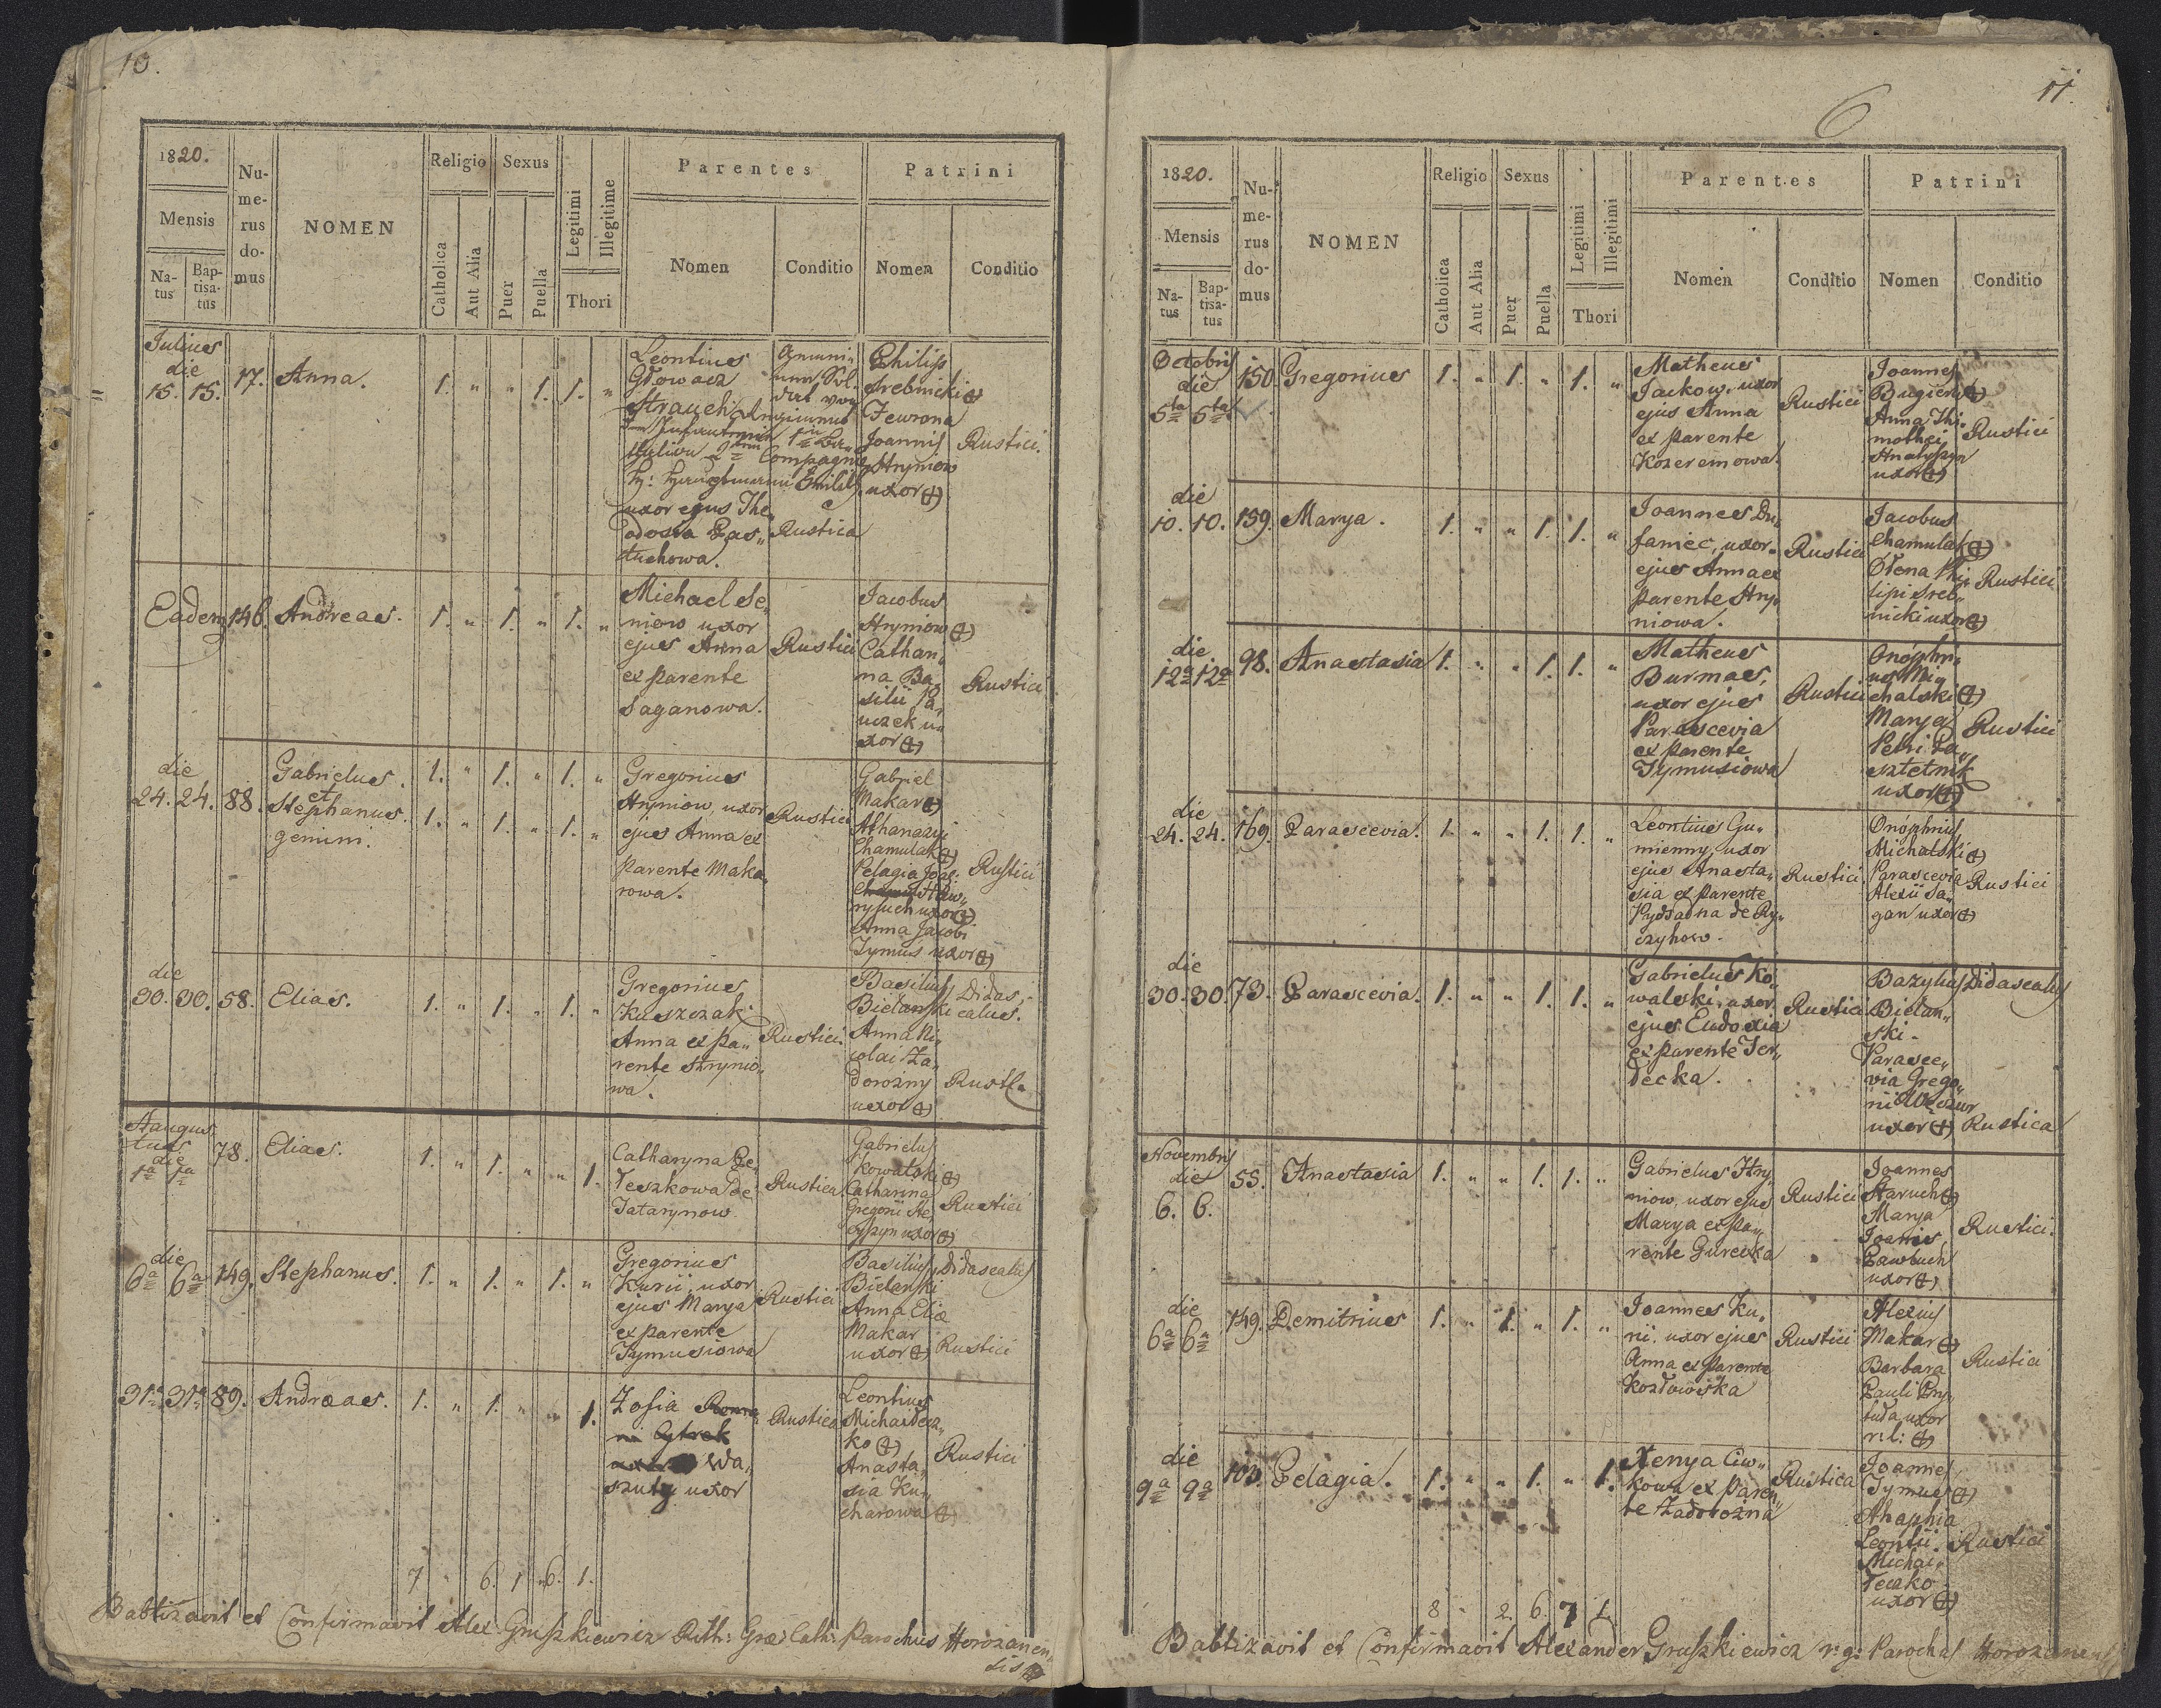 10.
1820.
Mensis
Na-
tus
Bap-
tisa-
tus
Nu-
me-
rus
do-
mus
NOMEN
Religio
Catholica
Aut Alia
Sexus
Puer
Puella
Legitimi
Illegitime
Thori
Parentes
Nomen
Conditio
Patrini
Nomen
Conditio
Julius
die
15. 15.
17.
Anna.
1. " " 1. 1. "
Leontius
Głowacz
uxor ejus The„
odosia Pas„
tuchowa.
Rustica
Philip
Srebnicki (+)
Fewrona
Joannis
Hryniow
uxor (+)
Rustici.
Eadem
146.
Andreas.
1. " 1. " 1. "
Michael Se„
niow uxor
ejus Anna
ex parente
Saganowa.
Rustici
Jacobus
Hryniow (+)
Cathari„
na Ba„
silii
uxor (+)
Rustici
die
24. 24.
88.
Gabrielus.
et
Stephanus.
gemini.
1. " 1. " 1. "
1. " 1. " 1. "
Gregorius
Hryniow, uxor
ejus Anna ex
parente Maka„
rowa.
Rustici
Gabriel
Makar (+)
Athanazyi
Chamulak (+)
Pelagia
uxor (+)
Anna Jacobi
Tymus uxor (+)
Rustici
die
30. 30.
58.
Elias.
1. " 1. " 1. "
Gregorius
Kuszczak
Anna ex pa„
rente Hrynio„
wa.
Rustici.
Basilius
Bielanski
Didas„
calus.
Anna Ni„
colai Za„
dorozny
uxor (+)
Rusti.
Augus
tus.
die
1a 1a
78.
Elias.
1. " 1. " " 1.
Catharyna Pe„
leszkowa de
Tatarynow.
Rustica
Gabrielus
Kowalski (+)
Catharina
Gregorii
uxor (+)
Rustici
die
6a 6a
149.
Stephanus.
1. " 1. " 1. "
Gregorius
Kurii, uxor
ejus Marya
ex parente
Tymusiowa
Rustici
Basilius
Bielanski
Didascalus
Anna Eliæ
Makar
uxor (+)
Rustici
31a 31a
89.
Andreas.
1. " 1. " " 1.
Zofia
Wa„
szuty uxor
Rustica
Leontius
Michailecz„
ko (+)
Anasta„
sia Ku„
charowa (+)
Rustici
7 " 6. 1 "6. 1.
Babtizavit et Confirmavit Alex. Gruszkiewicz Ruth: Græ: Cath: Parochus Horozanen„
sis
11.
6
1820.
Mensis
Na-
tus
Bap-
tisa-
tus
Nu-
me-
rus
do-
mus
NOMEN
Religio
Catholica
Aut Alia
Sexus
Puer
Puella
Legitimi
Illegitimi
Thori
Parentes
Nomen
Conditio
Patrini
Nomen
Conditio
Octobris
die
5ta 5ta
150
Gregorius
1. " 1. " 1. "
Matheus
Jackow, uxor
ejus Anna
ex parente
Kozeremowa.
Rustici
Joannes
Bugiera (+)
Anna Thi„
mothei
uxor (+)
Rustici
die
10. 10.
159.
Marya.
1. " " 1. 1. "
Joannes Du„
faniec, uxor
ejus Anna ex
parente Hry„
niowa.
Rustici
Jacobus
Chamulak (+)
Olena Phi„
lipi Sreb„
nicki uxor (+)
Rustici
die
12a 12a
98.
Anastasia
1. " " 1. 1. "
Matheus
Burmas,
uxor ejus
Parascevia
ex parente
Tymusiowa
Rustici
Onóphri„
us Mi„
chalski (+)
Marya
Petri
uxor (+)
Rustici
die
24. 24.
169.
Parascevia.
1. " " 1. 1. "
Leontius Gu„
mienny, uxor
ejus Anasta„
sia ex parente
de Ry„
czyhow.
Rustici.
Onóphrius
Michalski (+)
Parascevia
Alexii Sa„
gan uxor (+)
Rustici
die
30. 30.
73.
Parascevia.
1. " " 1. 1. "
Gabrielus Ko„
walski, uxor
ejus Eudoxia
ex parente Ter„
lecka.
Rustici
Bazylius
Bielan„
ski.
Didascalus
Parasce„
via Grego„
rii
uxor (+)
Rustica
Novembris
die
6. 6.
55.
Anastasia
1. " " 1. 1. "
Gabrielus Hry„
niow, uxor ejus
Marya ex pa„
rente Gurecka
Rustici
Joannes
Staruch (+)
Marya
Joannis
Pawluch
uxor (+)
Rustici.
die
6a 6a
149.
Demitrius
1. " 1. " 1. "
Joannes Ku„
rii, uxor ejus
Anna ex parente
Kozłowska
Rustici
Alexius
Makar (+)
Barbara
Pauli Pry„
tuła uxor
rel: (+)
Rustici
die
9a 9a
103.
Pelagia.
1. " " 1. " 1.
Xenya Ciw„
kowa ex paren„
te Zadorozna
Rustica
Joannes
Tymus (+)
Ahaphia
Leontii
Michai„
leczko
uxor (+)
Rustici
8 " 2. 6. 7 1.
Babtizavit et Confirmavit Alexander Gruszkiewicz r: g: Parochus Horozanen